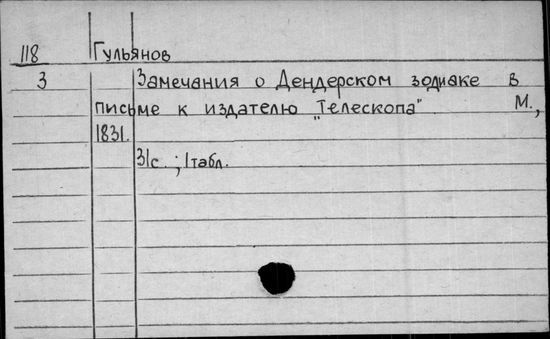 118 Гульянов
3 Замечания о Дендерском зодиаке в
письме к издателю "Телескопа" М.,
1831.
31с. ; 1табл.